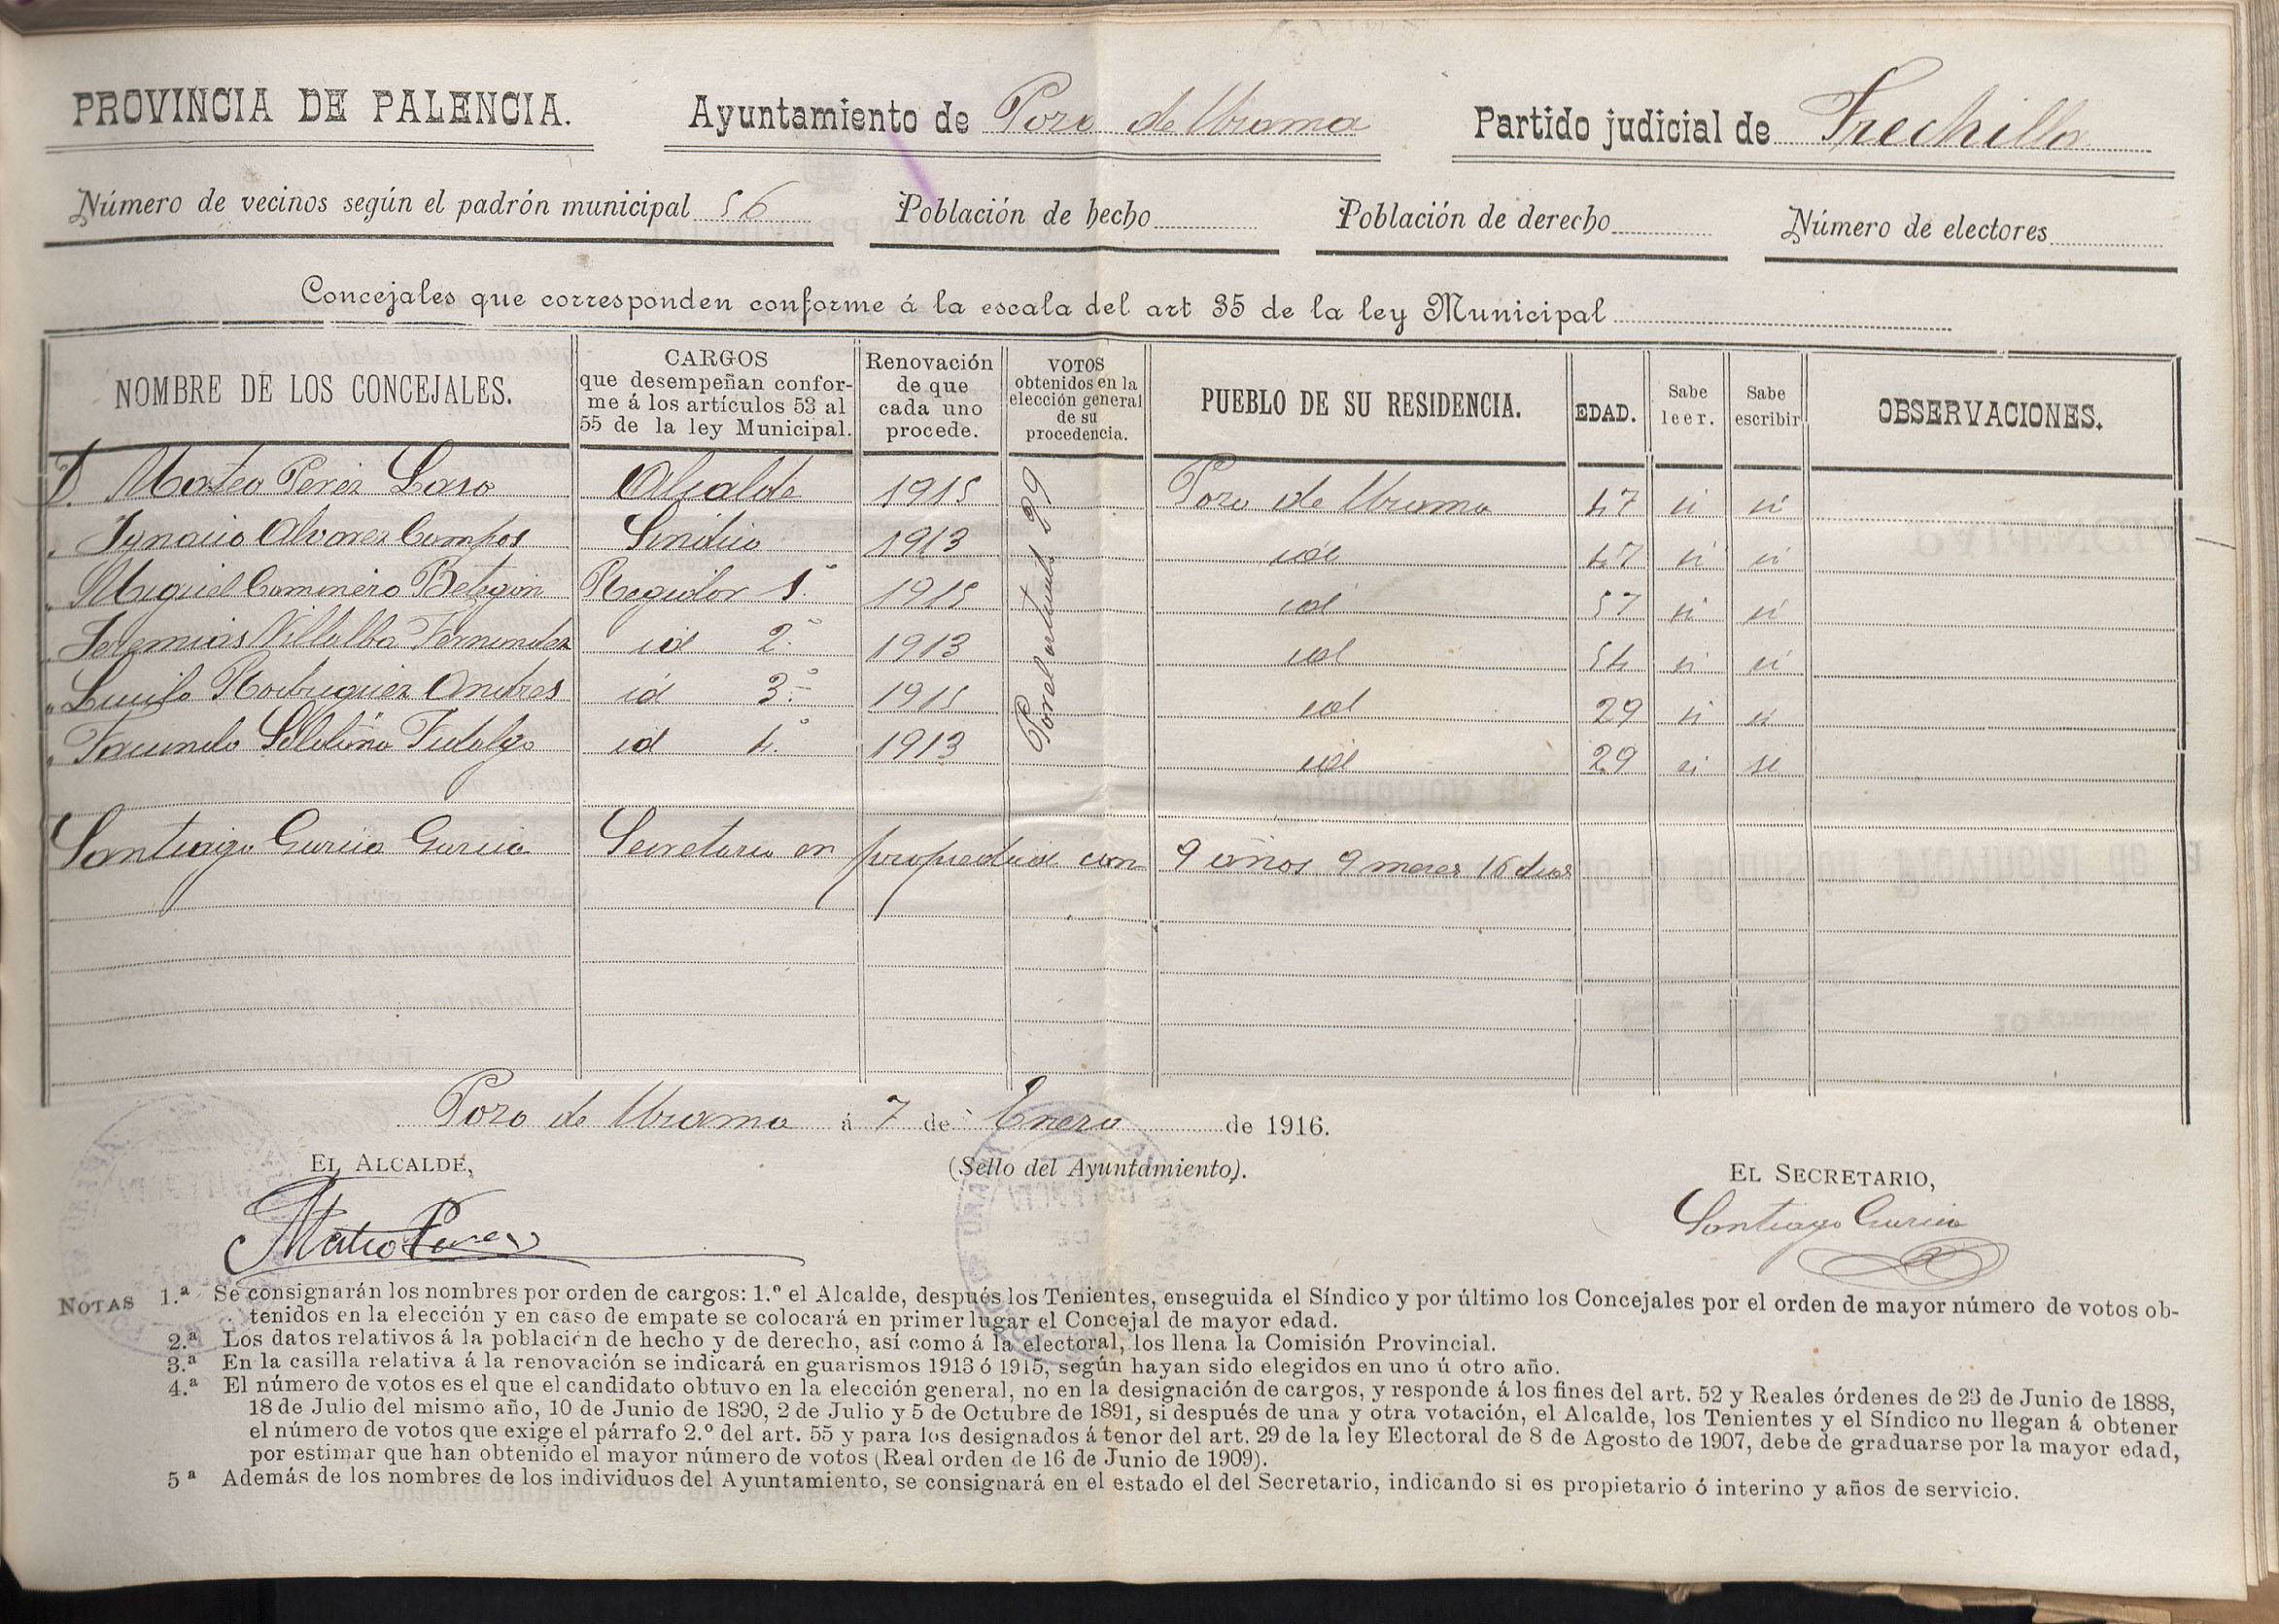 PROVINCIA DE PALENCIA. Ayuntamiento de Pozo de Urama Partido judicial de Frechilla
Número de vecinos según el padrón municipal 56 Población de hecho Población de derecho Número de electores
Concejales que corresponden conforme á la escala del art 35 de la ley Municipal
NOMBRE DE LOS CONCEJALES. CARGOS que desempeñan confor-me á los artículos 53 al 55 de la ley Municipal. Renovación de que cada uno procede. VOTOS obtenidos en la elección general de su procedencia. PUEBLO DE SU RESIDENCIA. EDAD. Sabe leer. Sabe escribir OBSERVACIONES.
D. Mateo Perez Laso Alcalde 1915 Pozo de Urama 47 si si
" Ignacio Alvarez Campos Sindico 1913 id 47 si si
" Miguel Caminero Betegon Regidor 1.º 1915 id 57 si si
" Jeremias Villalba Fernandez id 2.º 1913 id 54 si si
" Lucilo Rodriguez Andres id 3.º 1915 id 29 si si
" Facundo Fidalgo id 4.º 1913 id 29 si si
Por el articulo 29
Santiago Garcia Garcia Secretario en propiedad con 9 años 9 meses 16 dias
Pozo de Urama á 7 de Enero de 1916.
EL ALCALDE, (Sello del Ayuntamiento). EL SECRETARIO,
Mateo Perez Santiago Garcia
NOTAS 1.ª Se consignarán los nombres por orden de cargos: 1.º el Alcalde, después los Tenientes, enseguida el Síndico y por último los Concejales por el orden de mayor número de votos ob-
tenidos en la elección y en caso de empate se colocará en primer lugar el Concejal de mayor edad.
2.ª Los datos relativos á la población de hecho y de derecho, así como á la electoral, los llena la Comisión Provincial.
3.ª En la casilla relativa á la renovación se indicará en guarismos 1913 ó 1915, según hayan sido elegidos en uno ú otro año.
4.ª El número de votos es el que el candidato obtuvo en la elección general, no en la designación de cargos, y responde á los fines del art. 52 y Reales órdenes de 23 de Junio de 1888,
18 de Julio del mismo año, 10 de Junio de 1890, 2 de Julio y 5 de Octubre de 1891, si después de una y otra votación, el Alcalde, los Tenientes y el Síndico no llegan á obtener
el número de votos que exige el párrafo 2.º del art. 55 y para los designados á tenor del art. 29 de la ley Electoral de 8 de Agosto de 1907, debe de graduarse por la mayor edad,
por estimar que han obtenido el mayor número de votos (Real orden de 16 de Junio de 1909).
5ª Además de los nombres de los individuos del Ayuntamiento, se consignará en el estado el del Secretario, indicando si es propietario ó interino y años de servicio.